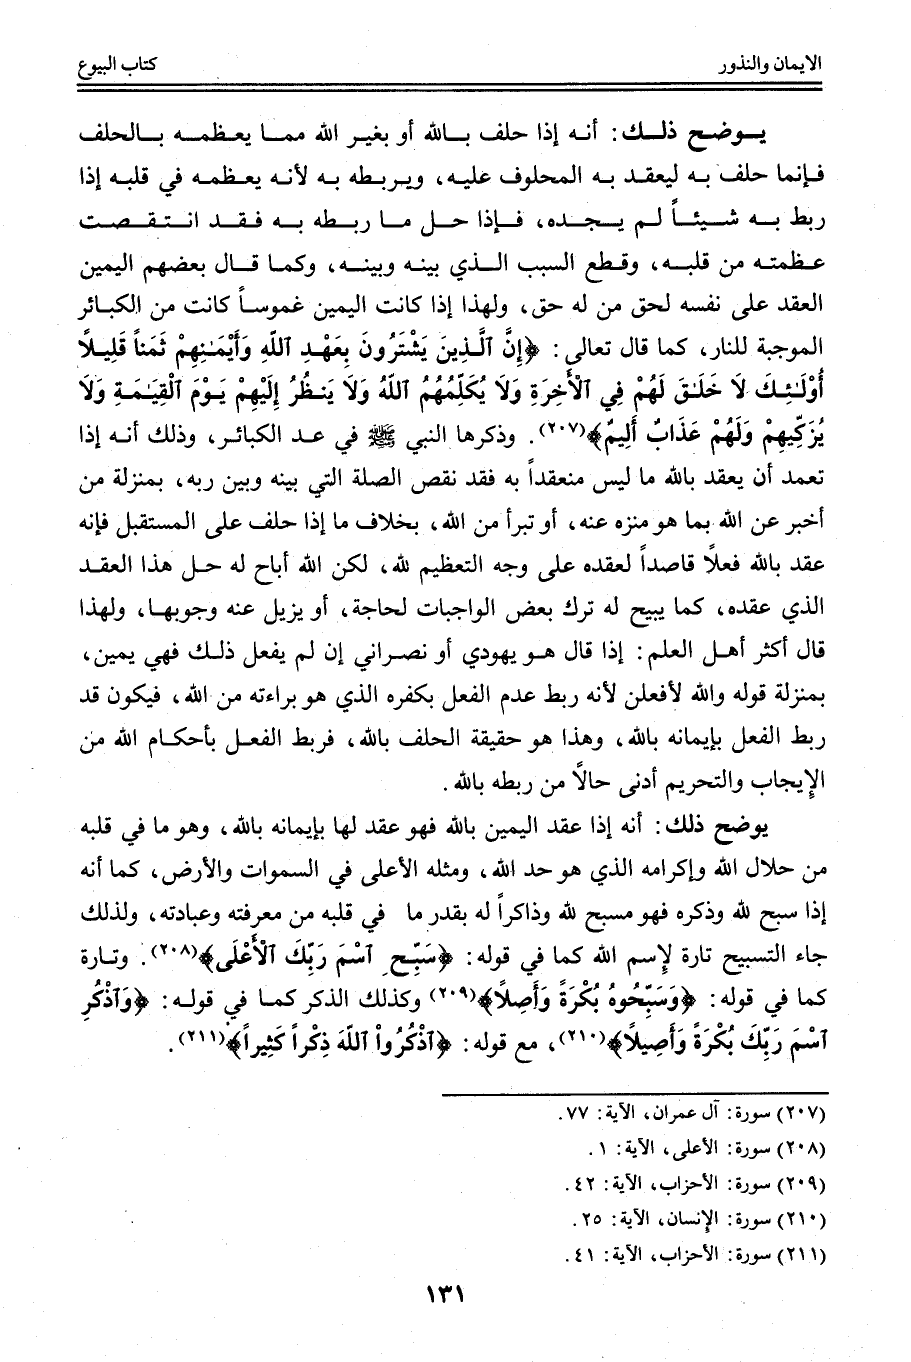 الايمان والنذور
كتاب البيوع
يـوضـح ذلـك: أنـه إذا حلف بـالله أو بغيـر الله ممـا يعـظمـه بـالحلف
فـإنما حلف بـه ليعقـد بـه المحلوف عليـه، ويـربطـه بـه لأنـه يعظمـه في قلبـه إذا
ربط بـه شـيئـاً لـم يـجـده، فـإذا حـل مـا ربـطـه بـه فـقـد انـتـقـصـت
عـظمتـه من قلبـه، وقـطع السبب الـذي بينـه وبينـه، وكمـا قـال بعضهم اليمين
العقد على نفسه لحق من له حق، ولهذا إذا كانت اليمين غموساً كانت من الكبائر
الموجبة للنار، كما قال تعالى: ﴿إِنَّ ٱلَّذِينَ يَشْتَرُونَ بِعَهْدِ ٱللَّهِ وَأَيْمَـٰنِهِمْ ثَمَناً قَلِيلاً
أُوْلَـٰئِـكَ لَا خَلَـٰقَ لَهُمْ فِي ٱلْأَخِرَةِ وَلَا يُكَلِّمُهُمُ ٱللَّهُ وَلَا يَنظُرُ إِلَيْهِمْ يَـوْمَ ٱلْقِيَـٰمَـةِ وَلَا
يُزَكِّيهِمْ وَلَهُمْ عَذَابٌ أَلِيمٌ﴾(٢٠٧). وذكرها النبي ﷺ في عـد الكبائـر، وذلك أنـه إذا
تعمد أن يعقد بالله ما ليس منعقداً به فقد نقص الصلة التي بينه وبين ربه، بمنزلة من
أخبر عن الله بما هو منزه عنه، أو تبرأ من الله، بخلاف ما إذا حلف على المستقبل فإنه
عقد بالله فعلاً قاصداً لعقده على وجه التعظيم لله، لكن الله أباح له حـل هذا العقـد
الذي عقده، كما يبيح له ترك بعض الواجبات لحاجة، أو يزيل عنه وجوبهـا، ولهذا
قال أكثر أهـل العلم: إذا قال هـو يهودي أو نصـراني إن لم يفعل ذلـك فهي يمين،
بمنزلة قوله والله لأفعلن لأنه ربط عدم الفعل بكفره الذي هو براءته من الله، فيكون قد
ربط الفعل بإيمانه بالله، وهذا هو حقيقة الحلف بالله، فربط الفعـل بأحكـام الله من
الإيجاب والتحريم أدنى حالاً من ربطه بالله.
يوضح ذلك: أنه إذا عقد اليمين بالله فهو عقد لها بإيمانه بالله، وهو ما في قلبه
من حلال الله وإكرامه الذي هو حد الله، ومثله الأعلى في السموات والأرض، كما أنه
إذا سبح لله وذكره فهو مسبح لله وذاكراً له بقدر ما في قلبه من معرفته وعبادته، ولذلك
جاء التسبيح تارة لإسم الله كما في قوله: ﴿سَبِّحِ ٱسْمَ رَبِّكَ ٱلْأَعْلَى﴾(٢٠٨). وتـارة
كما في قوله: ﴿وَسَبِّحُوهُ بُكْرَةً وَأَصِلاً﴾(٢٠٩) وكذلك الذكر كمـا في قولـه: ﴿وَٱذْكُرِ
ٱسْمَ رَبِّكَ بُكْرَةً وَأَصِيلاً﴾(٢١٠)، مع قوله: ﴿ٱذْكُرُواْ ٱللَّهَ ذِكْراً كَثِيراً﴾(٢١١).
(٢٠٧) سورة: آل عمران، الآية: ٧٧.
(٢٠٨) سورة: الأعلى، الآية: ١.
(٢٠٩) سورة: الأحزاب، الآية: ٤٢.
(٢١٠) سورة: الإنسان، الآية: ٢٥.
(٢١١) سورة: الأحزاب، الآية: ٤١.
١٣١